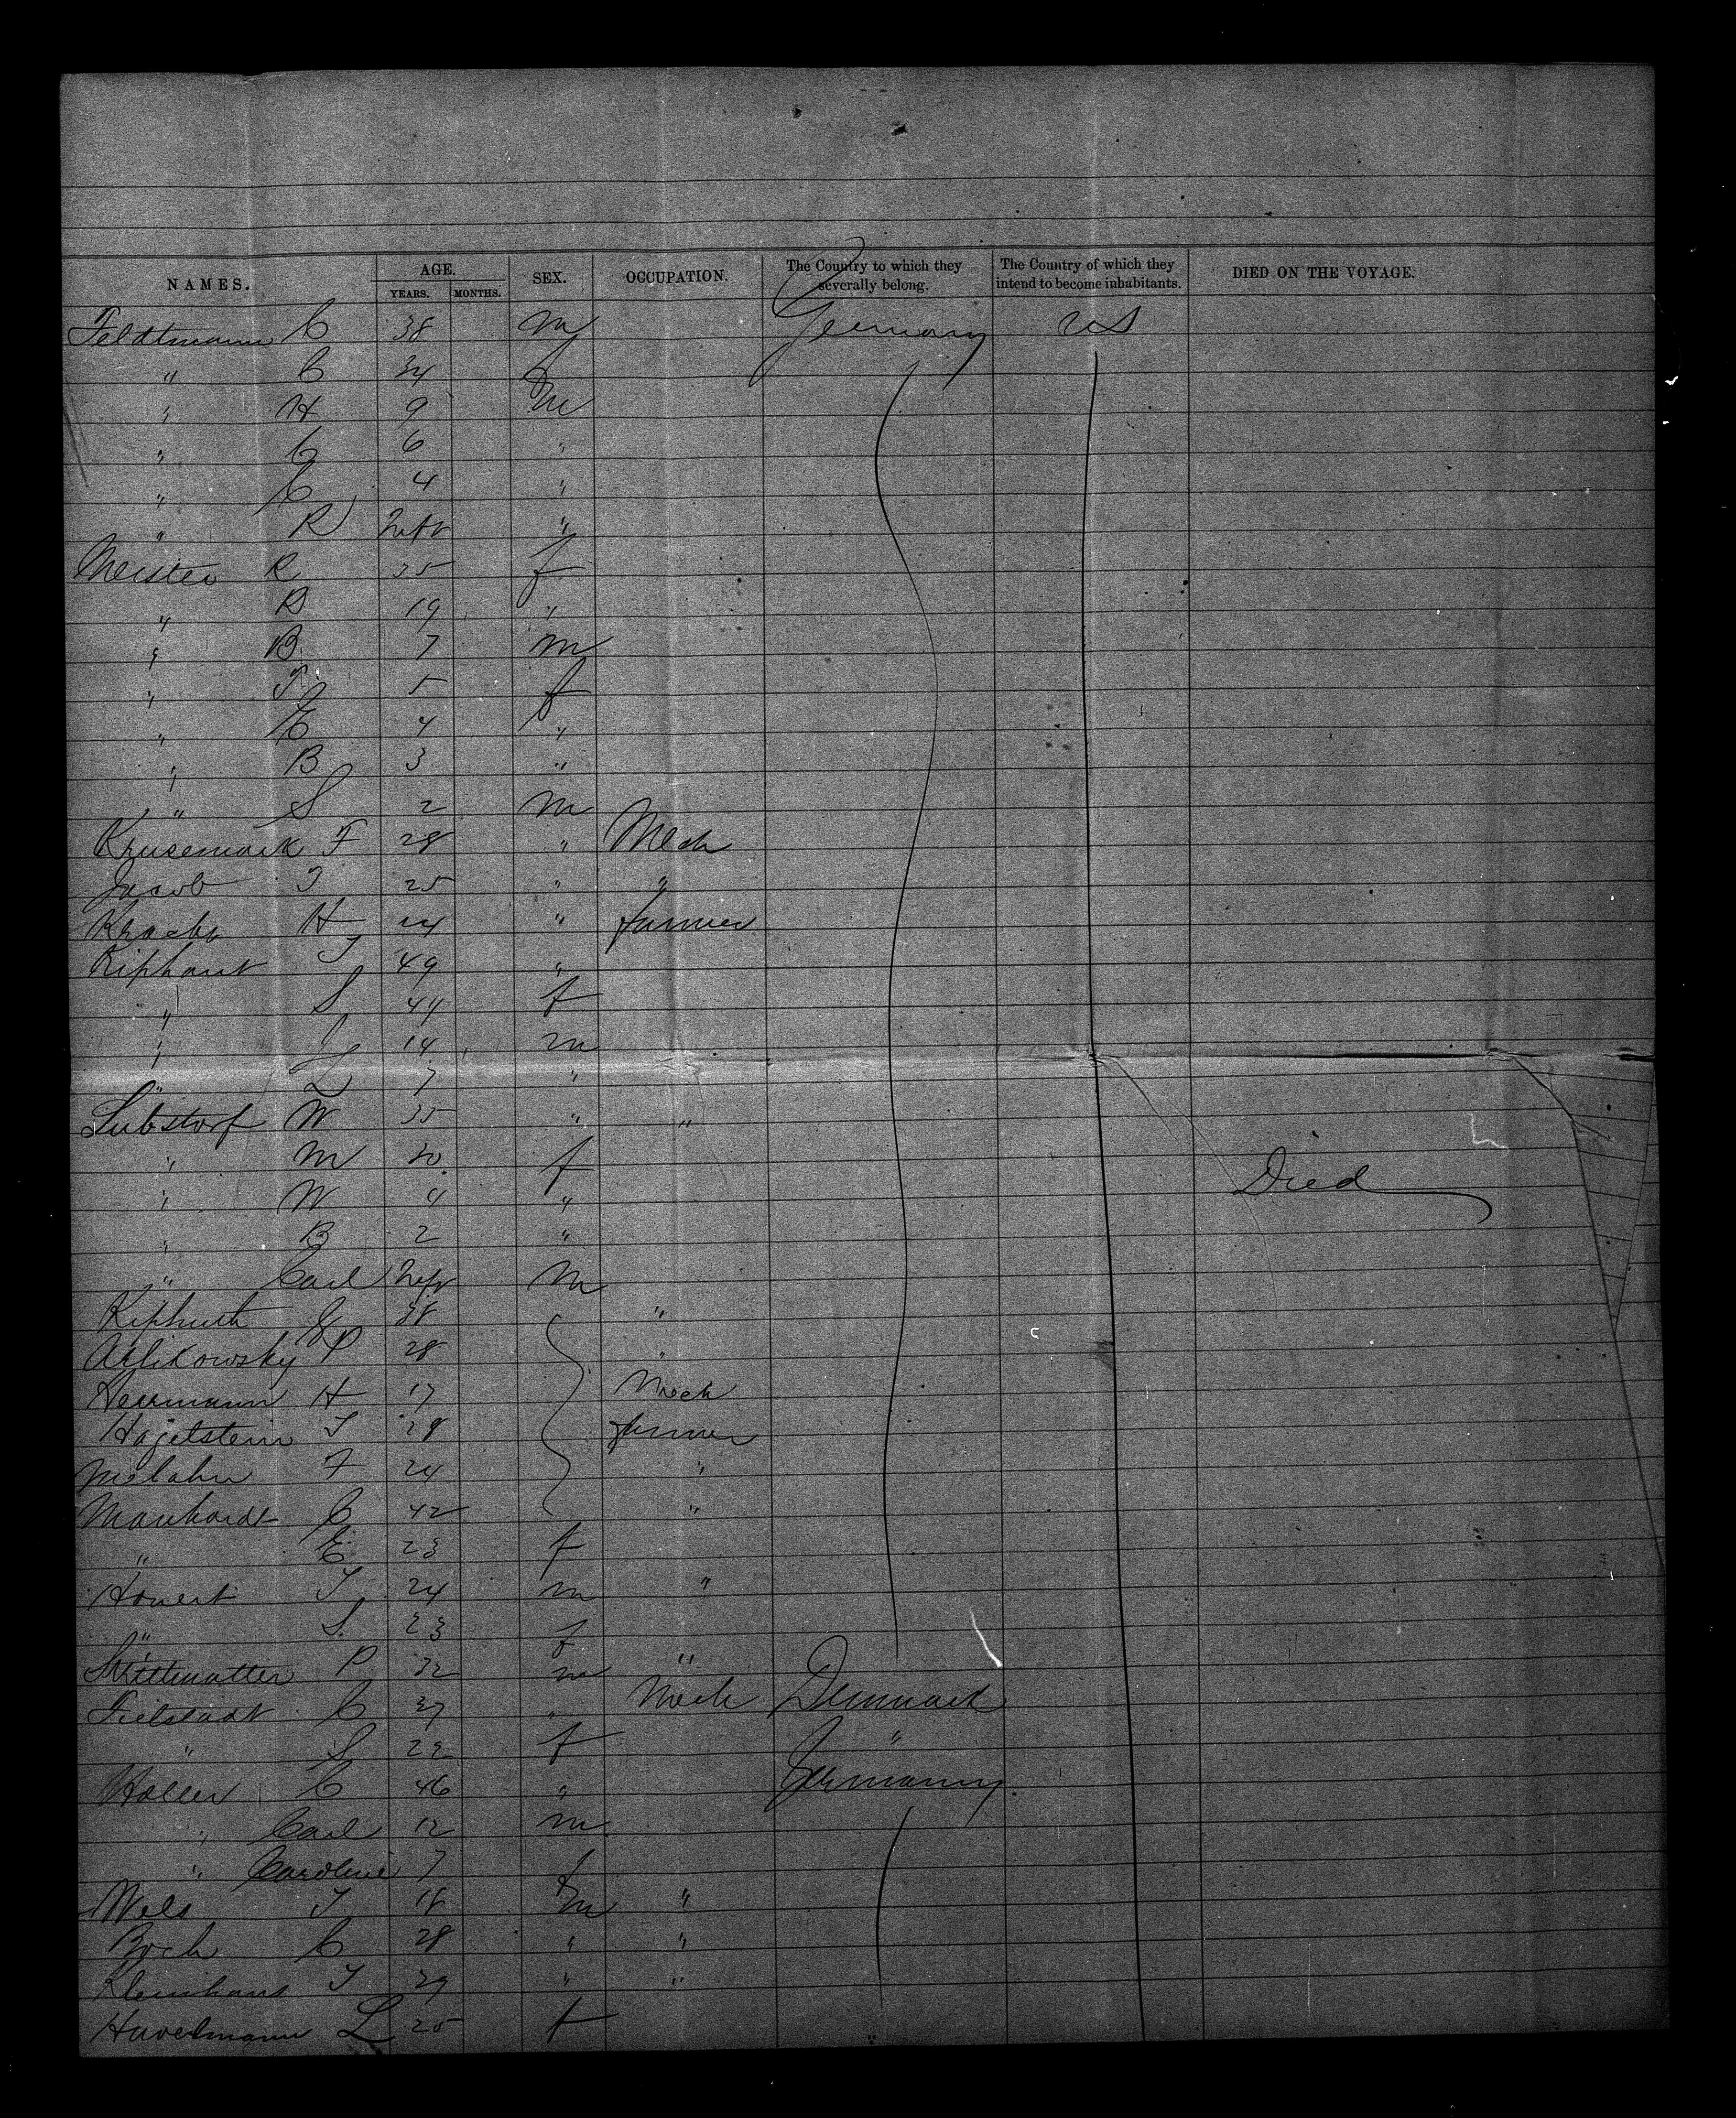 NAMES. AGE. YEARS. MONTHS. SEX. OCCUPATION. The Country to which they severally belong. The Country of which they intend to become inhabitants. DIED ON THE VOYAGE.
Feldtmann C 38 m Germany US
" C 34 f
" H 9 m
" C 6 "
" C 4 "
" R Inft "
Meister R 35 f
" B 19 "
" B 7 m
" T 5 f
" E 4 "
" B 3 "
" S 2 m
Krusemark F 28 " Mech
Jacob J 25 " "
H 24 " farmer
Kiphart J 49 "
" S 44 f
" J 14 m
" L 7 "
Lubstorf W 35 " "
" M 30 f
" W 4 " Died
" B 2 "
" Carl Inft m
Kiphuth C 38 "
P 28 "
Herrmann H 17 Mech
Hagelstein J 28 farmer
F 24 "
Manhardt C 42 "
" E 23 f
J 24 m "
" S 23 f
Strittmatter P 32 m "
Fielstadt C 37 " Mech Denmark
" S 22 f "
C 46 " Germany
" Carl 12 m
" Caroline 7 f
Wels J 18 m "
Boch C 28 " "
Kleinhans J 29 " "
Havelmann L 25 f